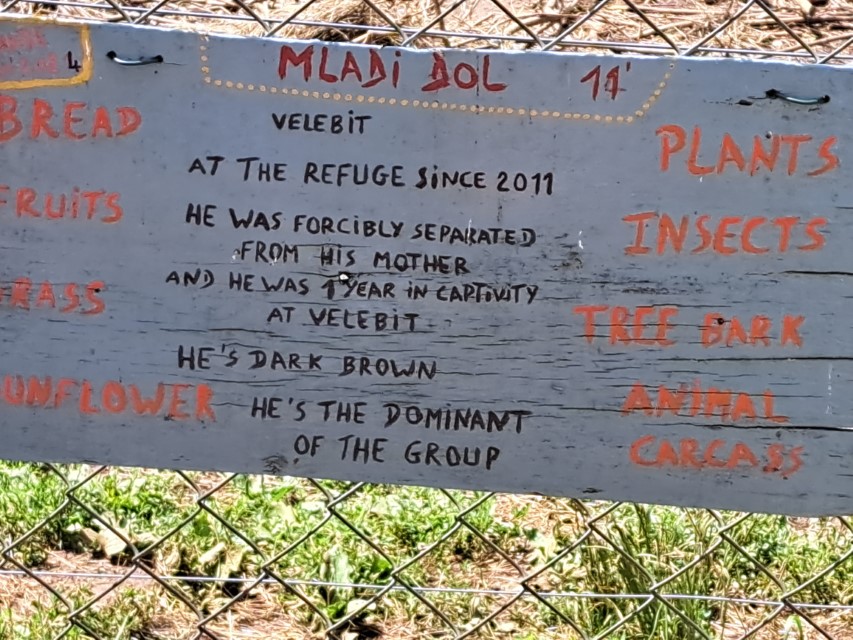 4
MLADi DOL 11'
VELEBiT
BREAD
PLANTS
AT THE REFUGE SiNCE 2011
FRUiTS
HE WAS FORCIBLY SEPARATED
INSECTS
FROM HIS MOTHER
AND HE WAS 1 YEAR iN CAPTiViTY
RASS
AT VELEBiT
TREE BARK
HE'S DARK BROWN
UNFLOWER
HE'S THE DOMiNANT
ANIMAL
OF THE GROUP
CARCASS